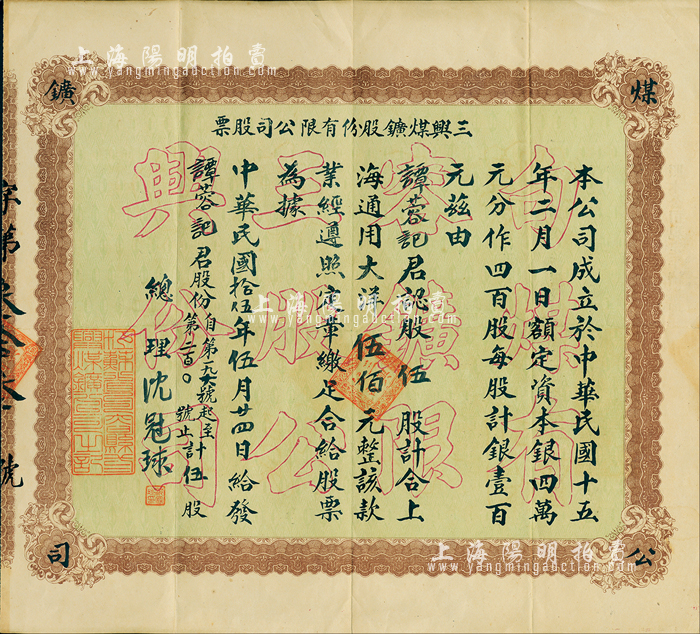 上海陽明拍賣
www.yangmingauction.com
煤
鑛
公
司
三興煤鑛股份有限公司股票
本公司成立於中華民國十五
年二月一日額定資本銀四萬
元分作四百股每股計銀壹百
元茲由
譚蓉記君認股伍股計合上
海通用大洋伍佰元整該款
業經遵照定章繳足合給股票
為據
中華民國拾伍年伍月廿四日給發
譚蓉記君股份自第一九六號起至第二百〇號止計伍股
總理沈冠球
字第
號
上海陽明拍賣
www.yangmingauction.com
上海陽明拍賣
www.yangmingauction.com